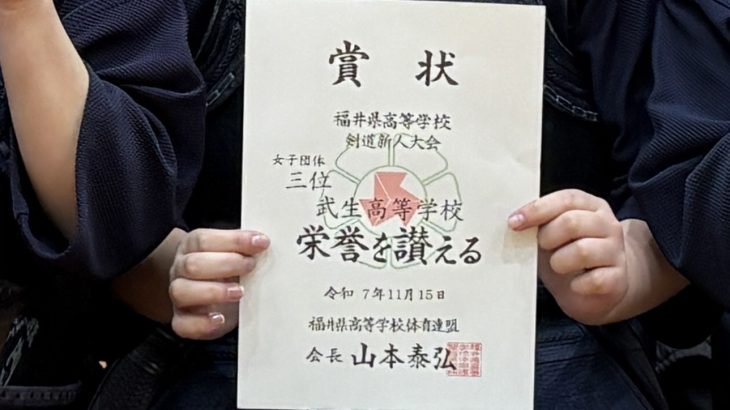 賞状
福井県高等学校
剣道新人大会
女子団体
三位
武生高等学校
栄誉を讃える
令和7年11月15日
福井県高等学校体育連盟
会長 山本泰弘